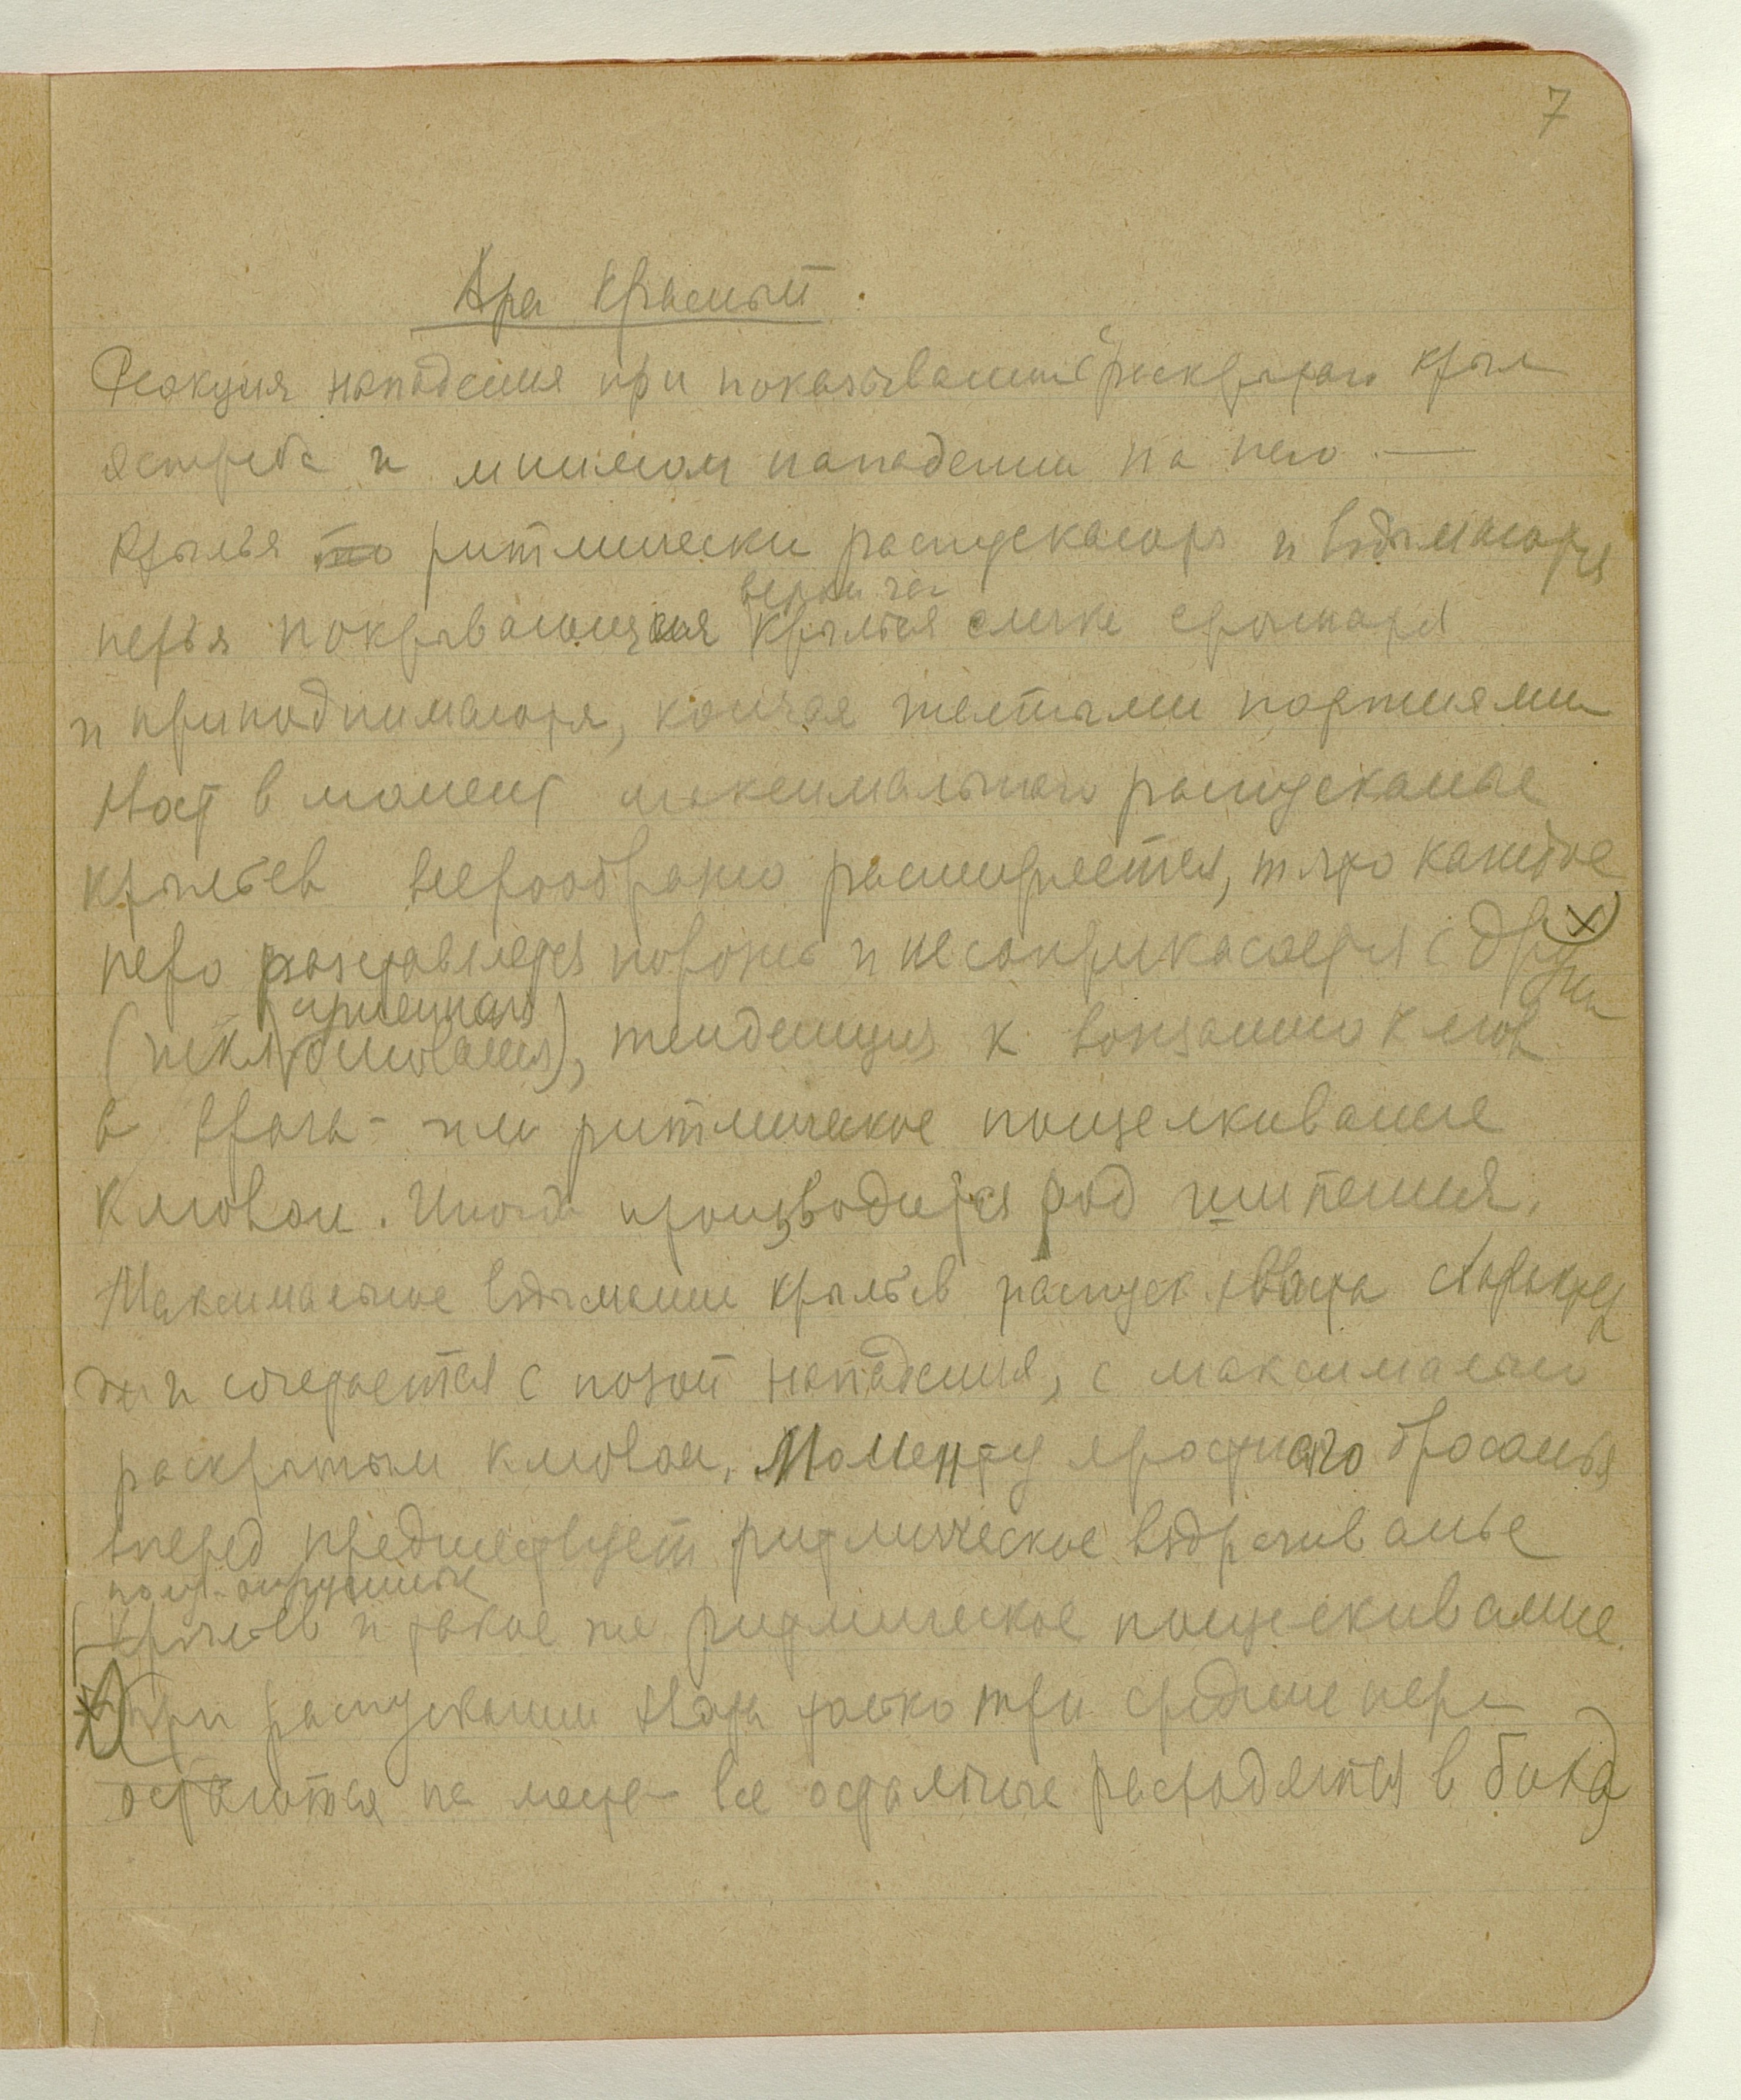 7
Ара красный.
Реакция нападения при показывании раскрытого крыла
ястреба и мнимом нападении на него —
Крылья то ритмически распускаются и вздымаются
верхн. час.
перья покрывающия крылья слегка
и приподнимаются, кончая желтыми партиями
Хвост в момент максимального распусканье
крыльев веерообразно расширяется, т. что каждое
перо разставляется порознь и не соприкасается с другим х)
, тенденция к вонзанию клюва
в врага - или ритмическое пощелкивание
клювом. Иногда производится род шипения.
Максимальное вздымание крыльев распуск. хвоста характер
но и сочетается с позой нападения, с максимально
раскрытым клювом. Моменту яростного бросанья
вперед предшествует ритмическое вздрагиванье
полуопущенных
крыльев и такое же ритмическое пощелкивание.
х) При распускании хвоста только три средние пера
остаются на месте все остальные расходятся в бока)